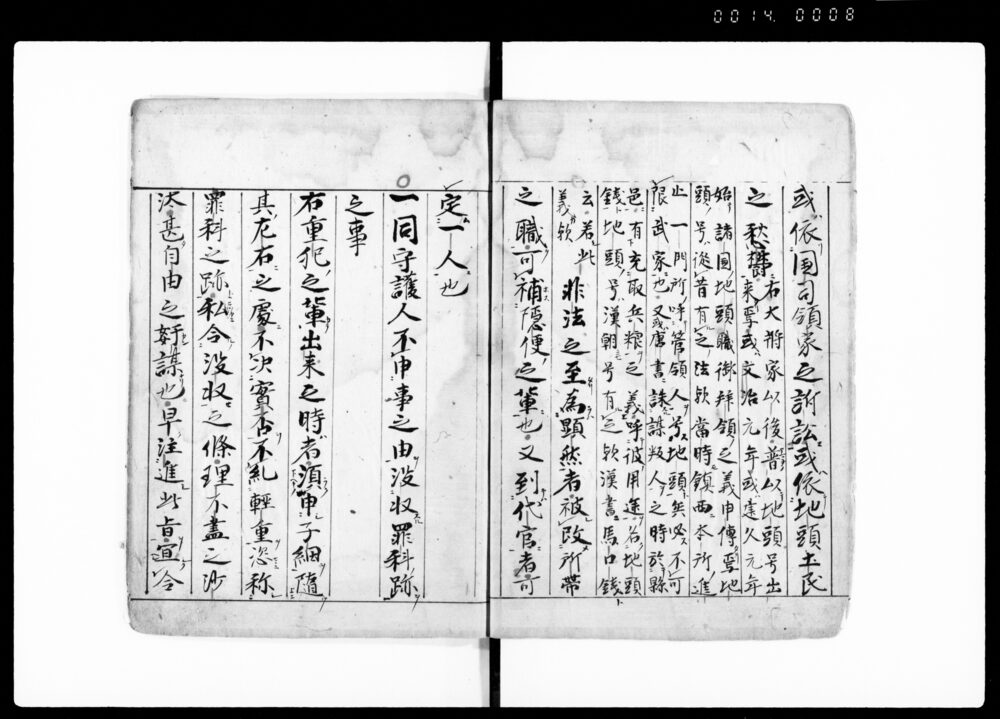 0014 0008
或依国司領家之訴訟或依地頭土民
之愁欝
右大将家以後普以地頭号出
来事或文治元年或建久元年
始諸国地頭職御拝領之義申傳畢地
頭号從昔有之法欤當時鎮西本所進
止一門所呼管領人号地頭無咎不可
限武家也又唐書誅謀叛人之時於縣
邑有充取兵粮之義呼彼用途名地頭
錢地頭号漢朝号有之欤漢書馬口錢
云若此
義欤
非法之至為顕然者被改所帶
之職可補隠便之輩也又到代官者可
定一人也
一同守護人不申事之由没収罪科跡
之事
右重犯之輩出来之時者須申子細随
其左右之處不決實否不糺輕重恣称
罪科之跡私令没収之條理不盡之沙
汰甚自由之奸謀也早注進此旨宜令